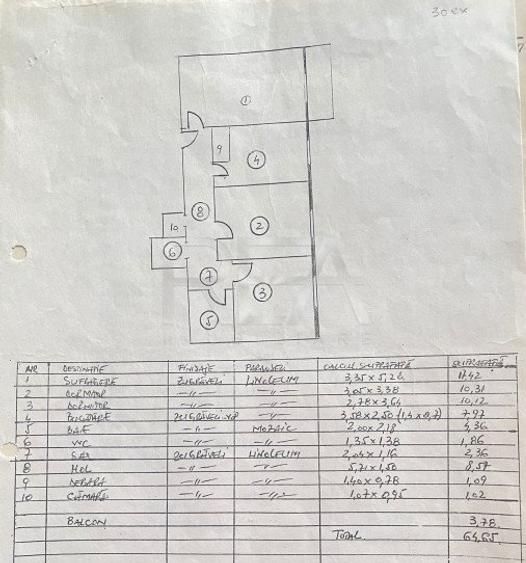 30 ex
1
9
4
8
10
2
6
7
3
5
NR DESTINATIE FINISAJE PARDOSELI CALCUL SUPRAFATĂ SUPRAFATĂ
1 SUFRAGERIE ZUGRĂVELI LINOLEUM 3,35 x 5,2
2 DORMITOR -//- -//- 3,05 x 3,38 10,31
3 DORMITOR -//- -//- 2,78 x 3,64 10,12
4 BUCĂTARIE -//- 3,58 x 2,50 (1,4 x 0,7) 7,97
5 BAIE -//- MOZAIC 2,00 x 2,18 4,36
6 WC -//- -//- 1,35 x 1,38 1,86
7 SAS ZUGRĂVELI LINOLEUM 2,04 x 1,16 2,36
8 HOL -//- -//- 5,71 x 1,50 8,57
9 DEBARA -//- -//- 1,40 x 0,78 1,09
10 CĂMARĂ -//- -//- 1,07 x 0,95 1,02
BALCON 3,78
TOTAL.